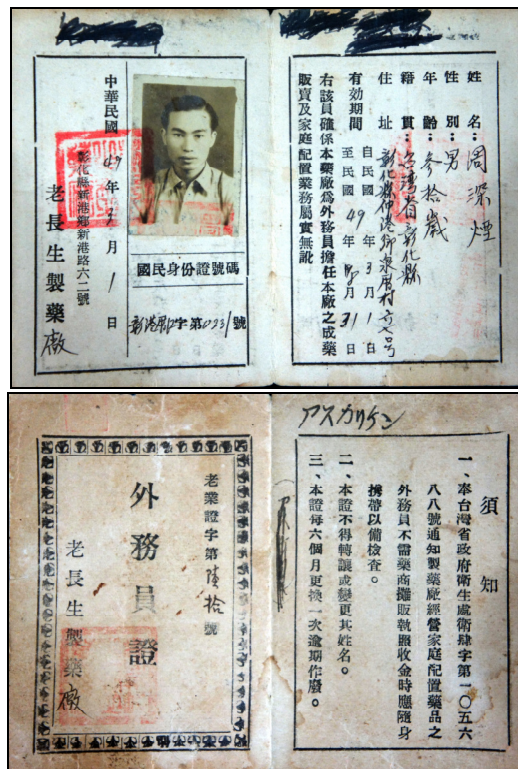 姓名：周深煙
性別：男
年齡：參拾歲
籍貫：台灣省彰化縣
住址：彰化縣伸港鄉泉厝村六七号
有効期間 自民國49年3月1日
至民國 年 月31日
右該員確係本藥廠爲外務員擔任本廠之成藥
販賣及家庭配置業務屬實無訛
國民身份證號碼
新港 字第 號
中華民國49年3月1日
彰化縣新港鄉新港路六二號
老長生製藥廠
アスカリケン
須知
一、奉台灣省政府衛生處衛肆字第一〇五六
八八號通知製藥廠經營家庭配置藥品之
外務員不需藥商攤販執照收金時應隨身
携帶以備檢查。
二、本證不得轉讓或變更其姓名。
三、本證每六個月更換一次逾期作廢。
老業證字第陸拾號
外務員證
老長生製藥廠